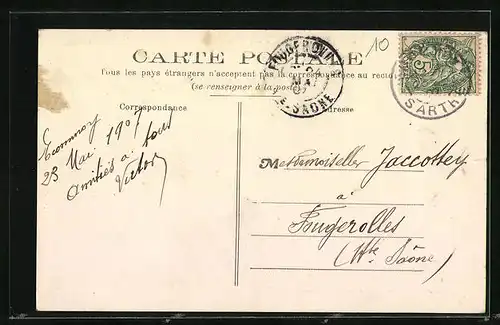 10
CARTE POSTALE
Tous les pays étrangers n'acceptent pas la correspondance au recto
(se renseigner à la poste)
FOUGEROLLES
Hte-SAONE
SARTHE
5
Correspondance
Adresse
Ecommoy
23 Mai 1907
Amitiés à tous
Victor
Mesdemoiselles Jaccottey
à
Fougerolles
(Hte Saône)